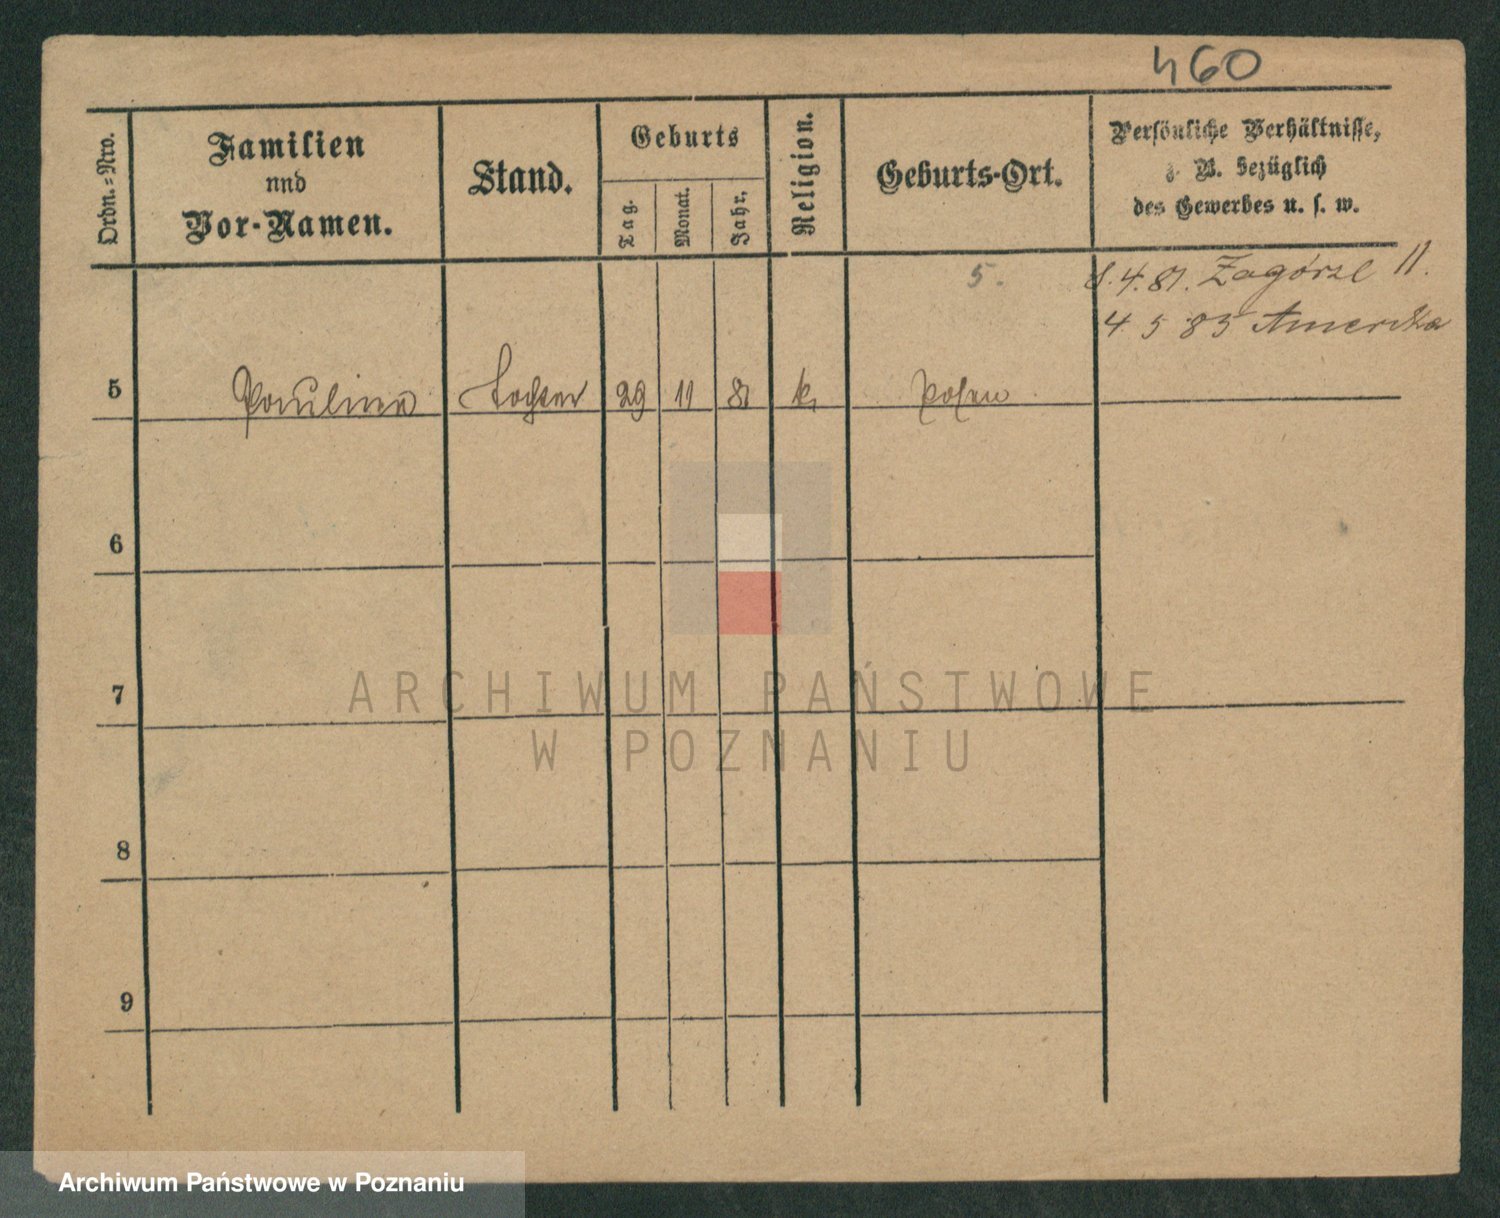 460
Ordn.=Nro.
Familien
und
Vor-Namen.
Stand.
Geburts
Tag.
Monat.
Jahr.
Religion.
Geburts-Ort.
Persönliche Verhältnisse,
z. B. bezüglich
des Gewerbes u. s. w.
5.
8.4.81. Zagórze 11.
4 5 85 Amerika
5 Pauline Tochter 29 11 81 k. Posen
6
7
8
9
ARCHIWUM PAŃSTWOWE
W POZNANIU
Archiwum Państwowe w Poznaniu